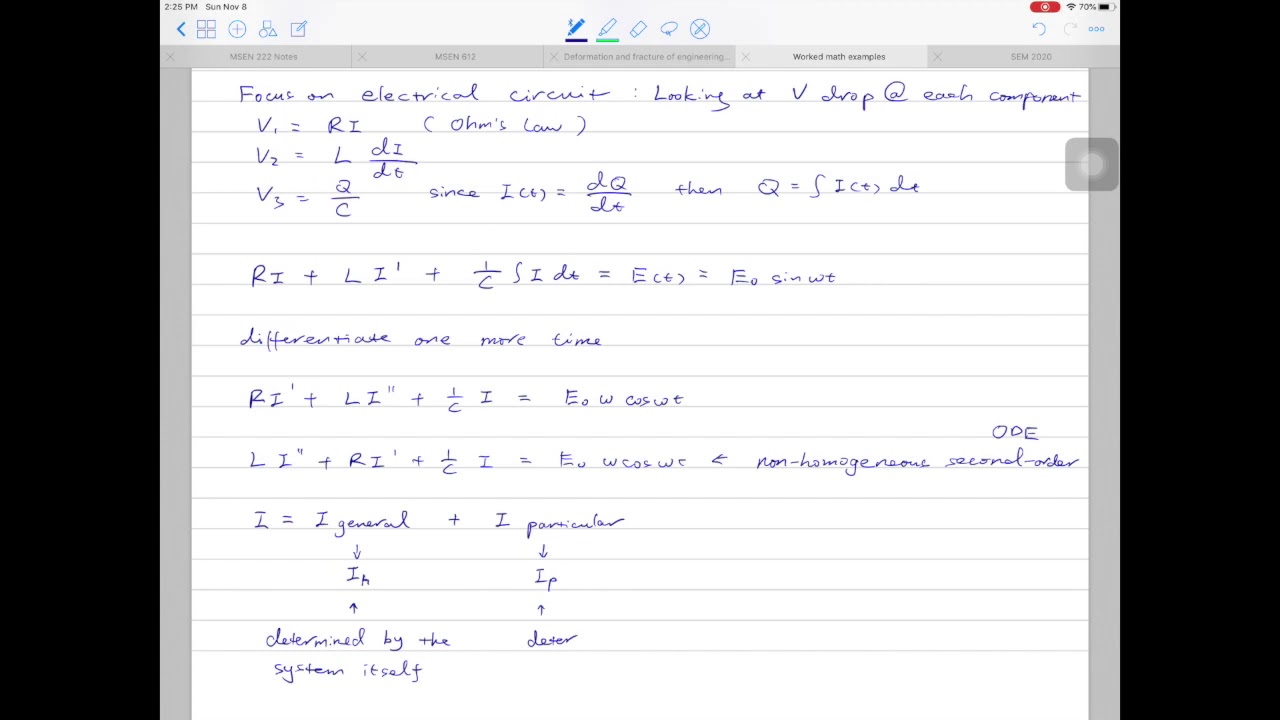 2:25 PM Sun Nov 8
70%
MSEN 222 Notes
MSEN 612
Deformation and fracture of engineering...
Worked math examples
SEM 2020
Focus on electrical circuit : Looking at V drop @ each component
V₁ = RI ( Ohm's Law )
V₂ = L dI/dt
V₃ = Q/C since I(t) = dQ/dt then Q = ∫ I(t) dt
RI + L I' + 1/C ∫ I dt = E(t) = E₀ sin ωt
differentiate one more time
RI' + LI'' + 1/C I = E₀ ω cos ωt
ODE
L I'' + RI' + 1/C I = E₀ ω cos ωt ← non-homogeneous second-order
I = I general + I particular
↓ ↓
I_h I_p
↑ ↑
determined by the deter
system itself